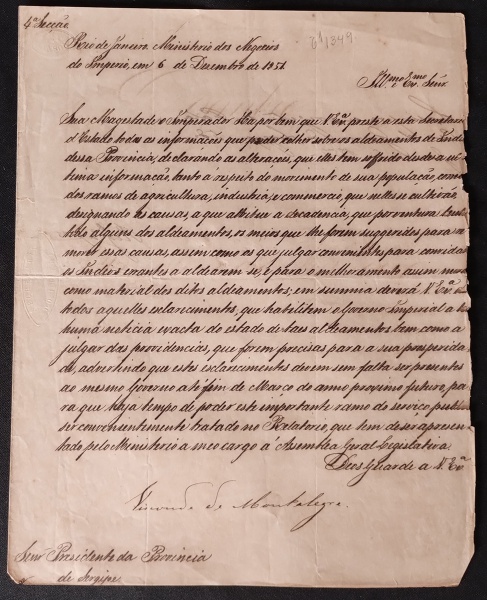 4ª Secção
Rio de Janeiro. Ministerio dos Negocios
do Imperio, em 6 de Dezembro de 1851
Illmo e Exmo Senr
Sua Magestade o Imperador Ha por bem que V. Exª preste a esta Secretaria
d'Estado todas as informações que poder colher sobre os aldeamentos de Indios
dessa Provincia, declarando as alterações, que elles tem soffrido desde a ul-
tima informação, tanto á respeito do movimento de sua população, como
dos ramos de agricultura, industria, e commercio, que nelles se cultivão,
designando as causas, a que attribue a decadencia, que por ventura
tido alguns dos aldeamentos, os meios que lhe forem suggeridos para re-
mover essas causas, assim como os que julgar convenientes para convidar
os Indios errantes a aldearem-se, e para o melhoramento assim moral
como material dos ditos aldeamentos; em summa deverá V. Exª
todos aquelles esclarecimentos, que habilitem o Governo Imperial a ter
huma noticia exacta do estado de taes aldeamentos bem como a
julgar das providencias, que forem precisas para a sua prosperida-
de, advertindo que estes esclarecimentos devem sem falta ser presentes
ao mesmo Governo até o fim de Março do anno proximo futuro, pa-
ra que haja tempo de poder este importante ramo do serviço publico
ser convenientemente tratado no Relatorio, que tem de ser apresen-
tado pelo Ministerio a meo cargo á Assemblea Geral Legislativa.
Deos Guarde a V. Exª
Visconde de Montalegre.
Senr Presidente da Provincia
de Sergipe.